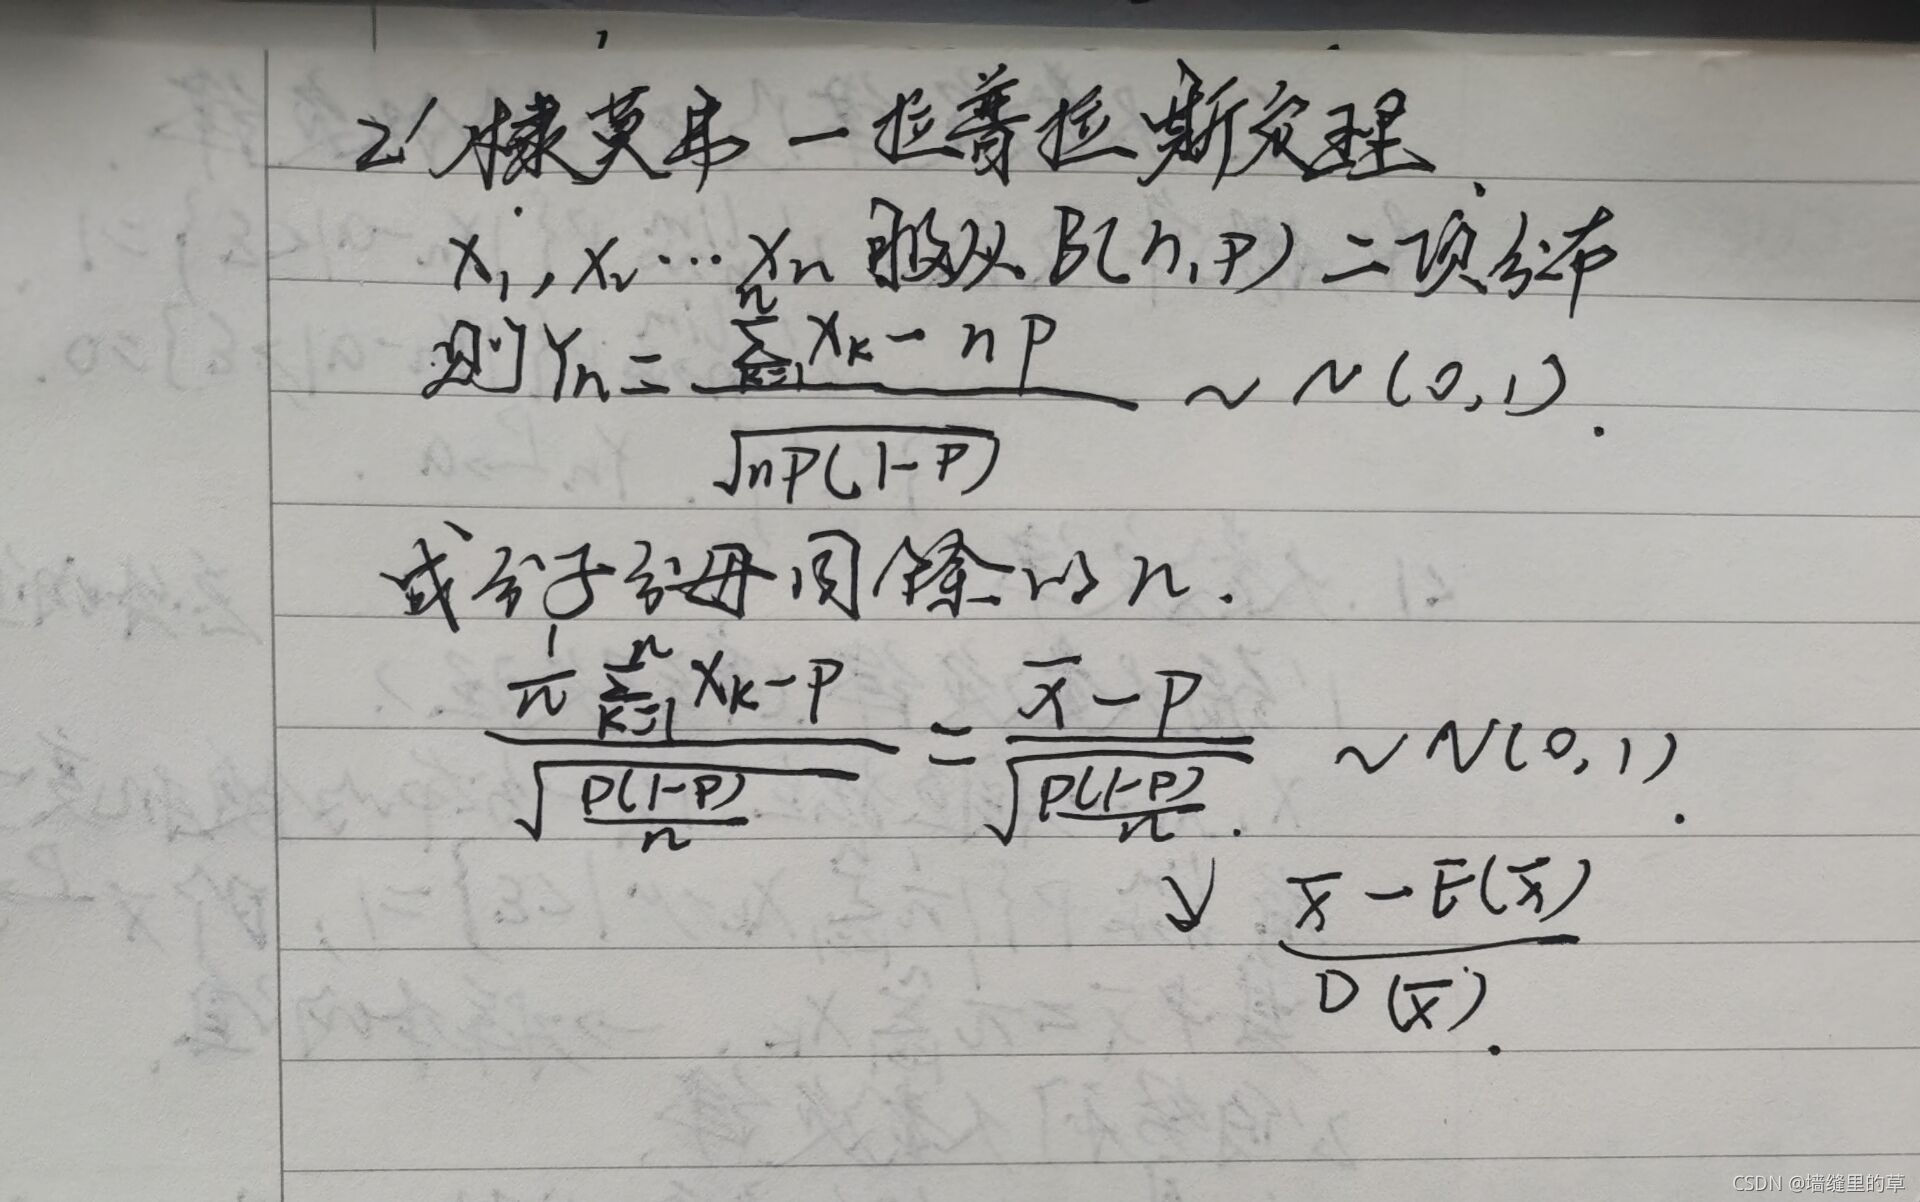 2' 棣莫弗-拉普拉斯定理.
X₁, X₂ ⋯ Xₙ 服从 B(n,P) 二项分布
则 Yₙ = (∑_{k=1}^{n} Xₖ - nP) / √(nP(1-P)) ~ N(0,1).
或分子分母同除以n.
(1/n ∑_{k=1}^{n} Xₖ - P) / √(P(1-P)/n) = (X̄ - P) / √(P(1-P)/n) . ~ N(0,1).
↓ (X̄ - E(X̄)) / D(X̄).
CSDN @墙缝里的草